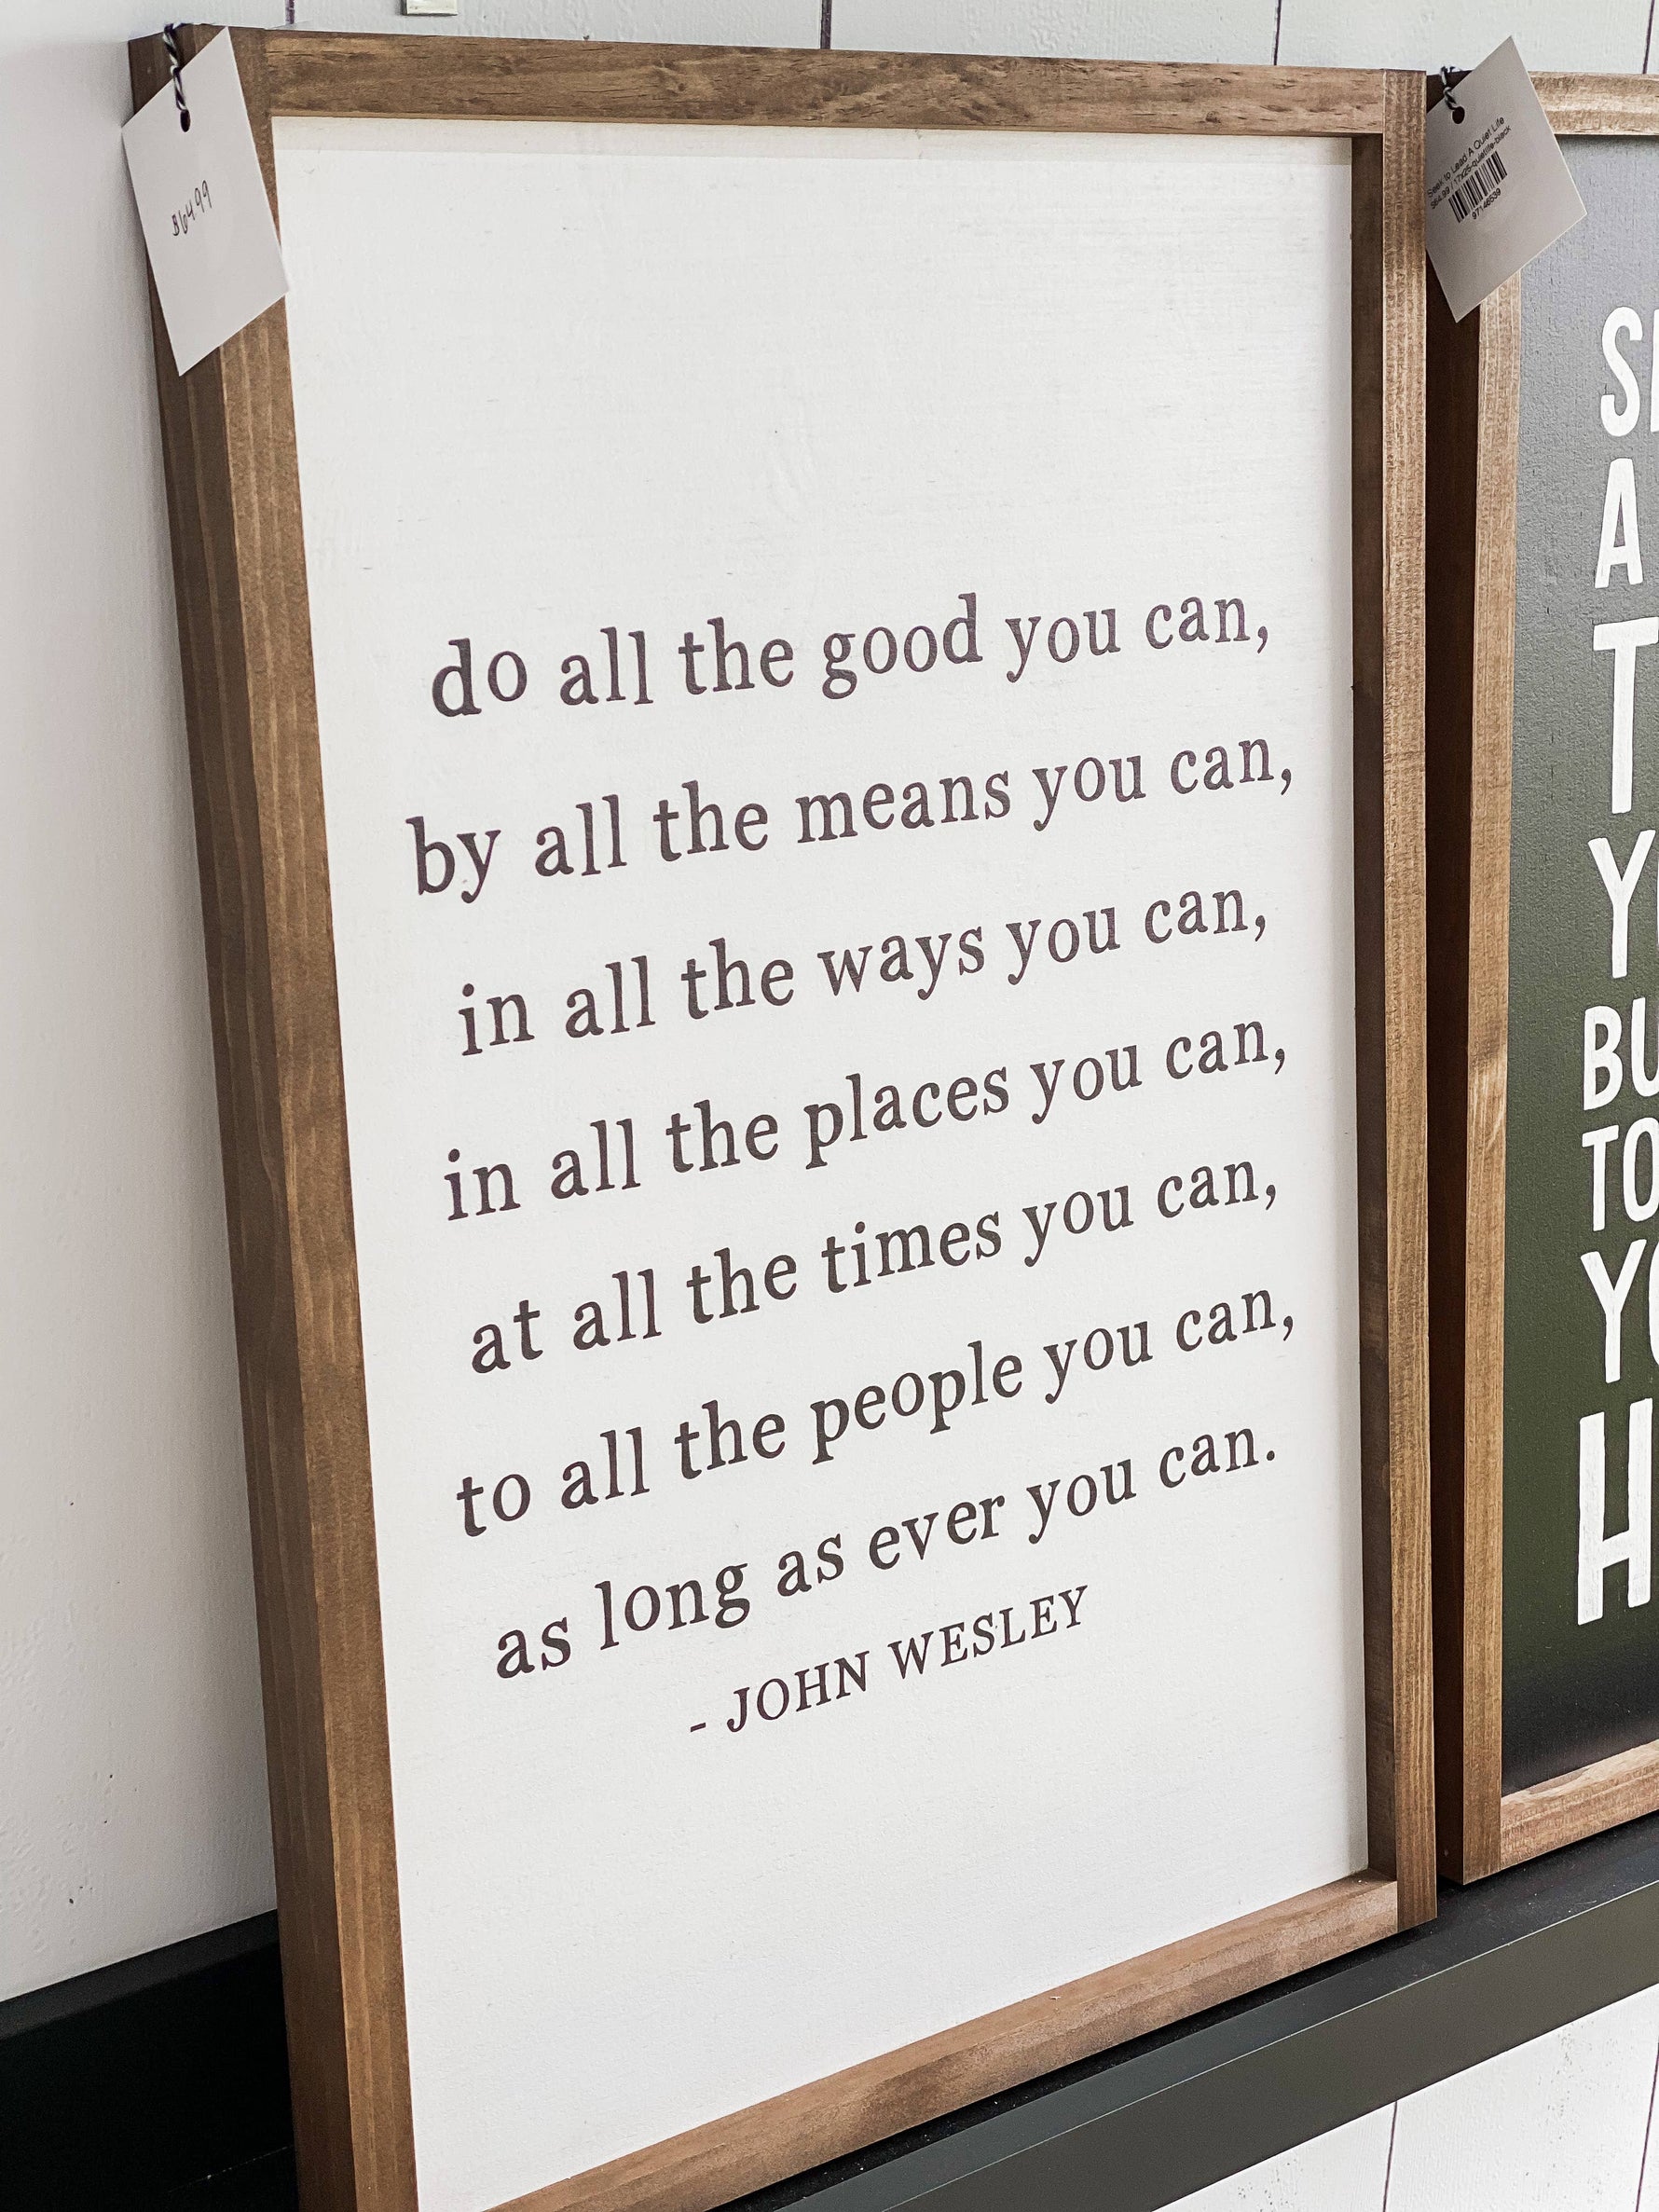 B64.99
do all the good you can,
by all the means you can,
in all the ways you can,
in all the places you can,
at all the times you can,
to all the people you can,
as long as ever you can.
- JOHN WESLEY
Seek To Lead A Quiet Life
$64.99 / 17x25-quietlife-black
97148539
A
T
BU
TO
YO
H